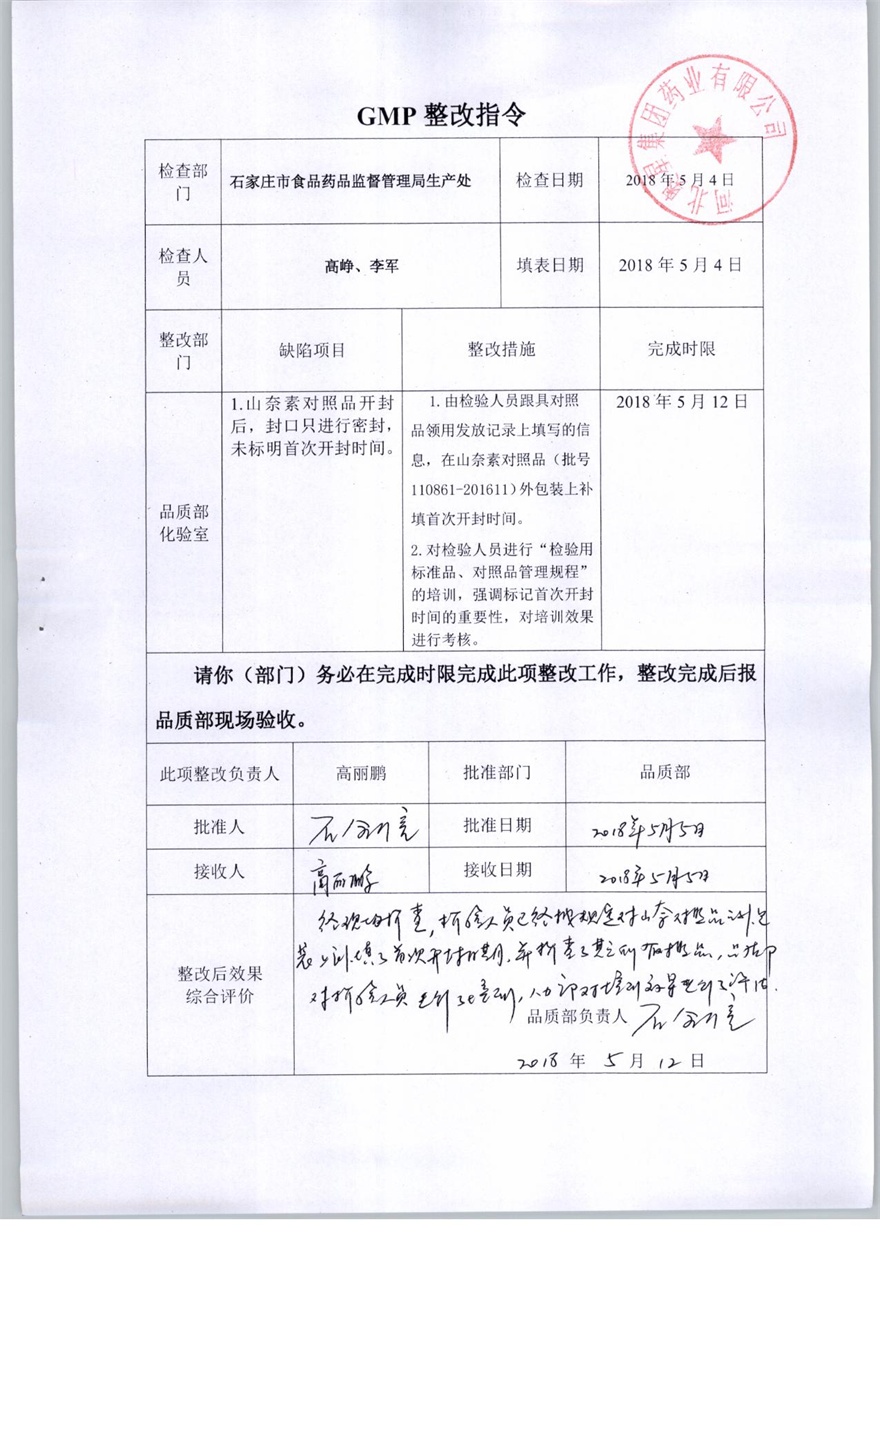 GMP 整改指令
河北
集团药业有限公司
检查部
门
石家庄市食品药品监督管理局生产处
检查日期
2018 年 5 月 4 日
检查人
员
高峥、李军
填表日期
2018 年 5 月 4 日
整改部
门
缺陷项目
整改措施
完成时限
品质部
化验室
1.山奈素对照品开封
后，封口只进行密封，
未标明首次开封时间。
1. 由检验人员跟具对照
品领用发放记录上填写的信
息，在山奈素对照品（批号
110861-201611）外包装上补
填首次开封时间。
2. 对检验人员进行“检验用
标准品、对照品管理规程”
的培训，强调标记首次开封
时间的重要性，对培训效果
进行考核。
2018 年 5 月 12 日
请你（部门）务必在完成时限完成此项整改工作，整改完成后报
品质部现场验收。
此项整改负责人
高丽鹏
批准部门
品质部
批准人
批准日期
2018年5月5日
接收人
高丽鹏
接收日期
2018年5月5日
整改后效果
综合评价
经现场检查，检验人员已经按规定对山奈对照品
首次开封
对检验人员进行了
品质部负责人
2018 年 5 月 12 日